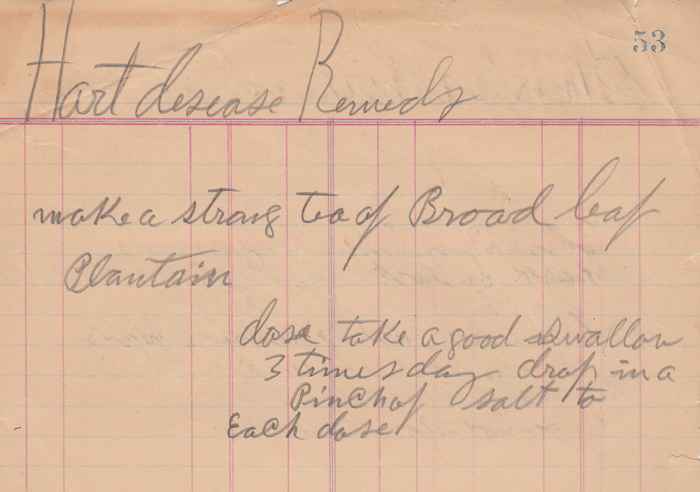 53
Hart desease Remedy
make a strong tea of Broad leaf
Plantain
dose take a good swallow
3 times day drop in a
Pinch of salt to
Each dose